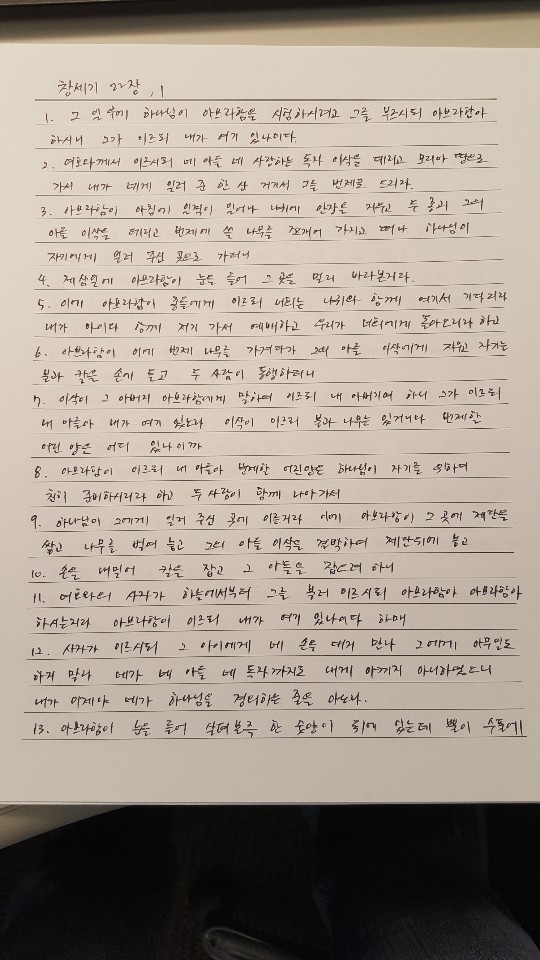 창세기 22장, 1
1. 그 일 후에 하나님이 아브라함을 시험하시려고 그를 부르시되 아브라함아
하시니 그가 이르되 내가 여기 있나이다.
2. 여호와께서 이르시되 네 아들 네 사랑하는 독자 이삭을 데리고 모리아 땅으로
가서 내가 네게 일러 준 한 산 거기서 그를 번제로 드리라.
3. 아브라함이 아침에 일찍이 일어나 나귀에 안장을 지우고 두 종과 그의
아들 이삭을 데리고 번제에 쓸 나무를 쪼개어 가지고 떠나 하나님이
자기에게 일러 주신 곳으로 가더니
4. 제삼일에 아브라함이 눈을 들어 그 곳을 멀리 바라본지라.
5. 이에 아브라함이 종들에게 이르되 너희는 나귀와 함께 여기서 기다리라
내가 아이와 함께 저기 가서 예배하고 우리가 너희에게 돌아오리라 하고
6. 아브라함이 이에 번제 나무를 가져다가 그의 아들 이삭에게 지우고 자기는
불과 칼을 손에 들고 두 사람이 동행하더니
7. 이삭이 그 아버지 아브라함에게 말하여 이르되 내 아버지여 하니 그가 이르되
내 아들아 내가 여기 있노라 이삭이 이르되 불과 나무는 있거니와 번제할
어린 양은 어디 있나이까
8. 아브라함이 이르되 내 아들아 번제할 어린양은 하나님이 자기를 위하여
친히 준비하시리라 하고 두 사람이 함께 나아가서
9. 하나님이 그에게 일러 주신 곳에 이른지라 이에 아브라함이 그 곳에 제단을
쌓고 나무를 벌여 놓고 그의 아들 이삭을 결박하여 제단위에 놓고
10. 손을 내밀어 칼을 잡고 그 아들을 잡으려 하니
11. 여호와의 사자가 하늘에서부터 그를 불러 이르시되 아브라함아 아브라함아
하시는지라 아브라함이 이르되 내가 여기 있나이다 하매
12. 사자가 이르시되 그 아이에게 네 손을 대지 말라 그에게 아무일도
하지 말라 네가 네 아들 네 독자까지도 내게 아끼지 아니하였으니
내가 이제야 네가 하나님을 경외하는 줄을 아노라.
13. 아브라함이 눈을 들어 살펴본즉 한 숫양이 뒤에 있는데 뿔이 수풀에